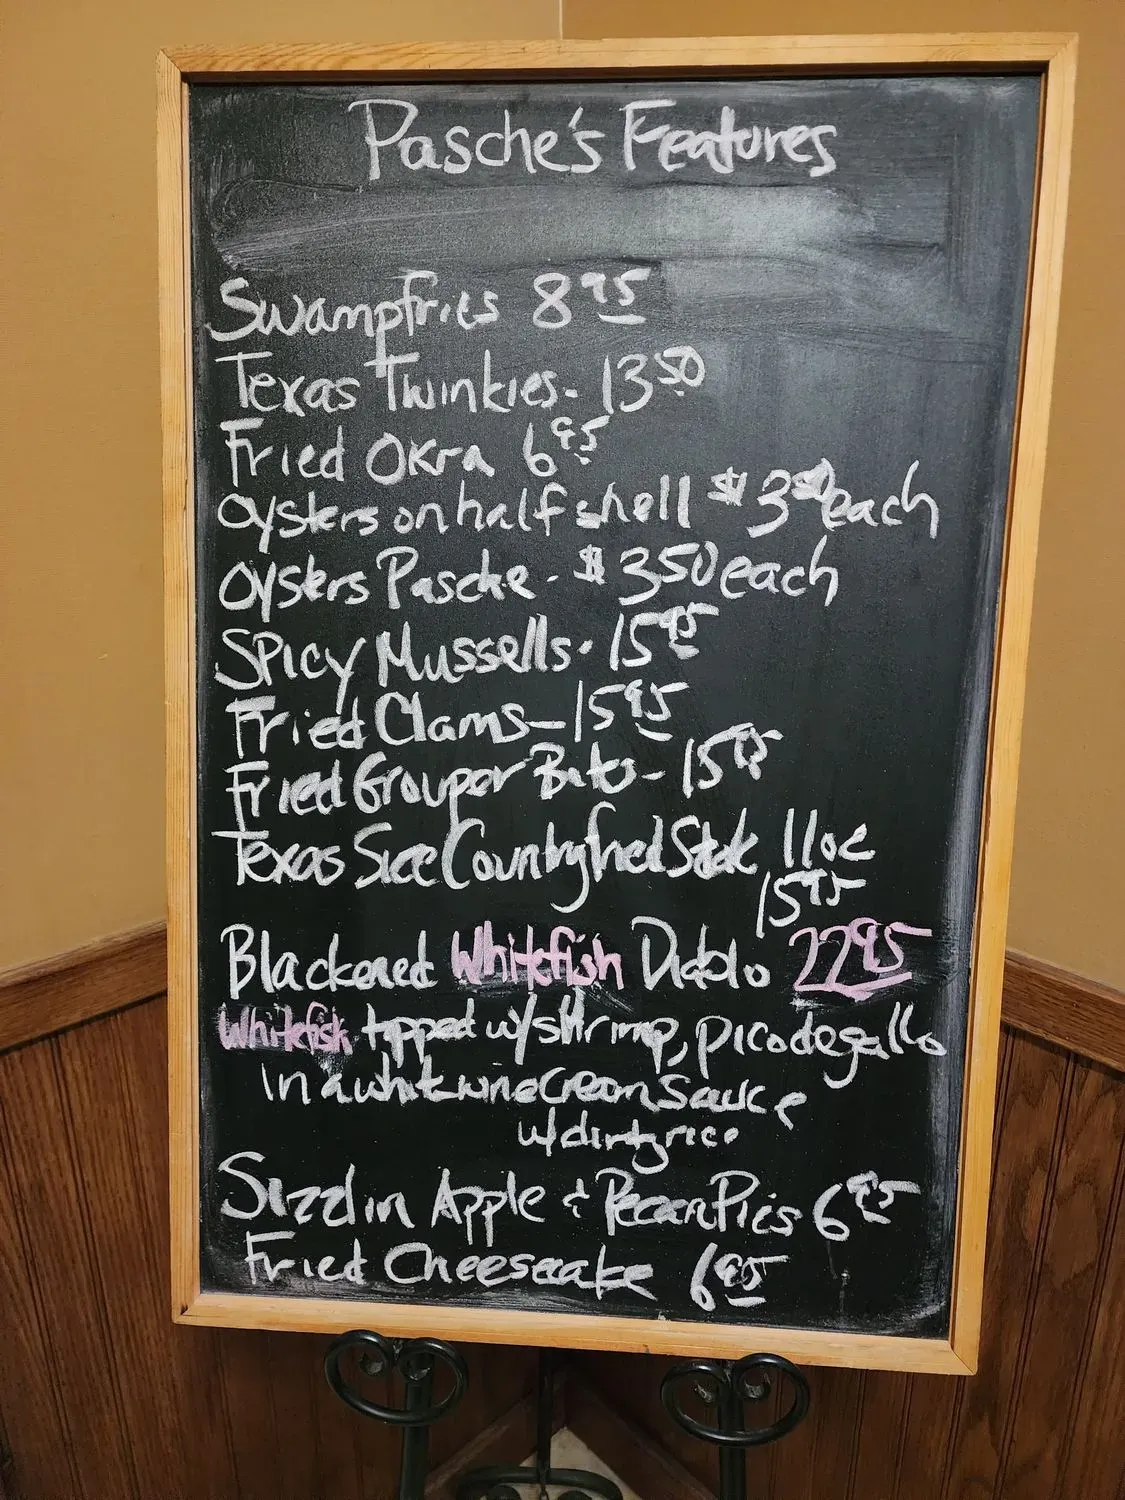 Pasche's Features
Swampfries 8 95
Texas Twinkies - 13 50
Fried Okra 6 95
Oysters on half shell $3 50 each
Oysters Pasche - $3 50 each
Spicy Mussells - 15 95
Fried Clams - 15 95
Fried Grouper Bits - 15 95
Texas Size Countryfried Steak 11oz
15 95
Blackened Whitefish Diablo 22 95
Whitefish topped w/shrimp, picodegallo
in a white wine cream sauce
w/dirty rice
Sizzlin Apple & Pecan Pies 6 95
Fried Cheesecake 6 95